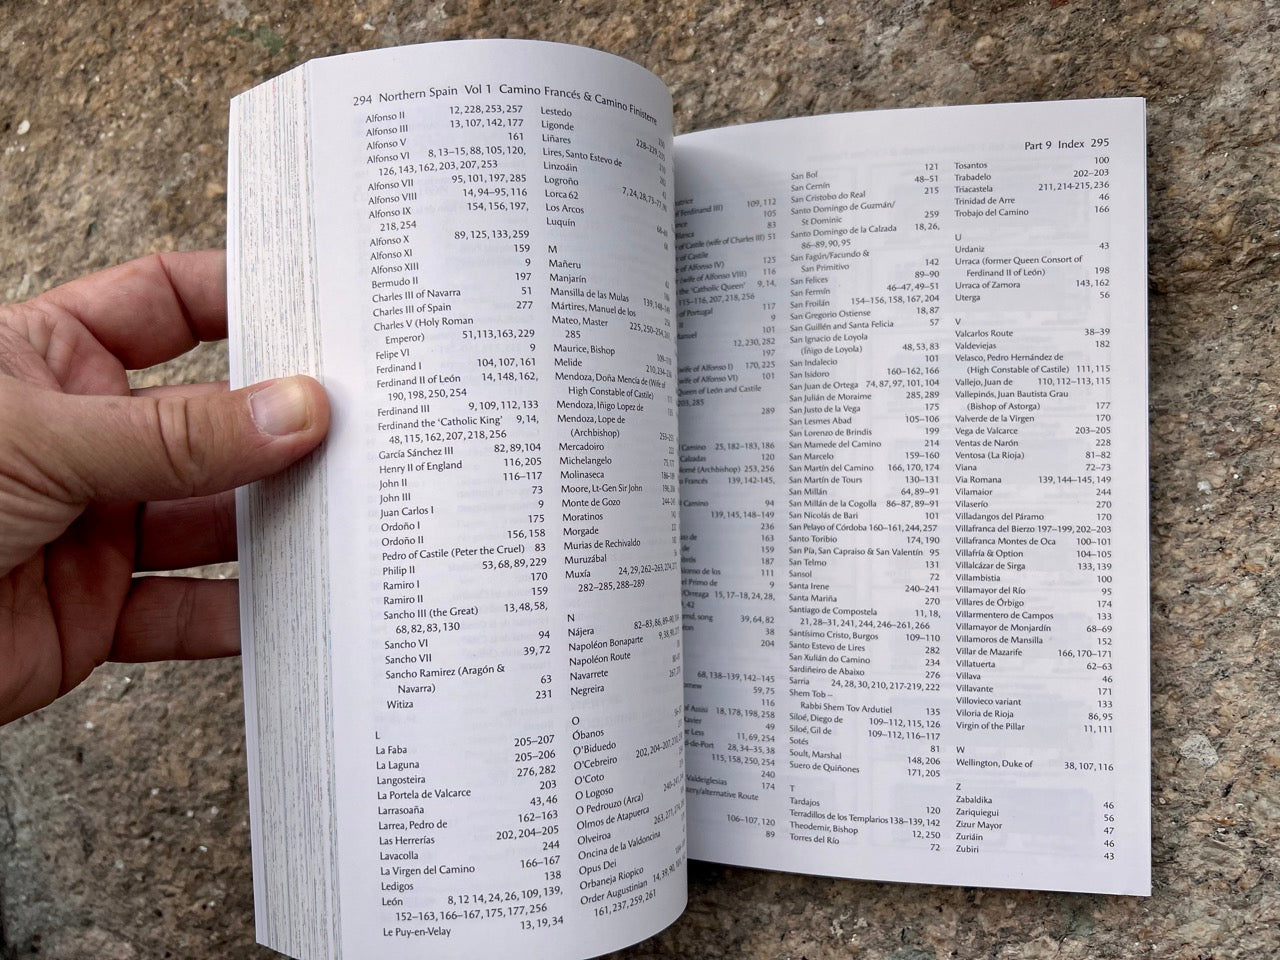 294 Northern Spain Vol 1 Camino Francés & Camino Finisterre
Alfonso II 12, 228, 253, 257
Alfonso III 13, 107, 142, 177
Alfonso V 161
Alfonso VI 8, 13–15, 88, 105, 120,
126, 143, 162, 203, 207, 253
Alfonso VII 95, 101, 197, 285
Alfonso VIII 14, 94–95, 116
Alfonso IX 154, 156, 197,
218, 254
Alfonso X 89, 125, 133, 259
Alfonso XI 159
Alfonso XIII 9
Bermudo II 197
Charles III of Navarra 51
Charles III of Spain 277
Charles V (Holy Roman
Emperor) 51, 113, 163, 229
Felipe VI 9
Ferdinand I 104, 107, 161
Ferdinand II of León 14, 148, 162,
190, 198, 250, 254
Ferdinand III 9, 109, 112, 133
Ferdinand the 'Catholic King' 9, 14,
48, 115, 162, 207, 218, 256
García Sánchez III 82, 89, 104
Henry II of England 116, 205
John II 116–117
John III 73
Juan Carlos I 9
Ordoño I 175
Ordoño II 156, 158
Pedro of Castile (Peter the Cruel) 83
Philip II 53, 68, 89, 229
Ramiro I 170
Ramiro II 159
Sancho III (the Great) 13, 48, 58,
68, 82, 83, 130
Sancho VI 94
Sancho VII 39, 72
Sancho Ramírez (Aragón &
Navarra) 63
Witiza 231
L
La Faba 205–207
La Laguna 205–206
Langosteira 276, 282
La Portela de Valcarce 203
Larrasoaña 43, 46
Larrea, Pedro de 162–163
Las Herrerías 202, 204–205
Lavacolla 244
La Virgen del Camino 166–167
Ledigos 138
León 8, 12 14, 24, 26, 109, 139,
152–163, 166–167, 175, 177, 256
Le Puy-en-Velay 13, 19, 34
Lestedo
Ligonde
Liñares
Lires, Santo Estevo de
Linzoáin
Logroño
Lorca 62
Los Arcos
Luquín
M
Mañeru
Manjarín
Mansilla de las Mulas
Mártires, Manuel de los
Mateo, Master
285
Maurice, Bishop
Melide
Mendoza, Doña Mencía de (Wife of
High Constable of Castile)
Mendoza, Iñigo Lopez de
Mendoza, Lope de
(Archbishop)
Mercadoiro
Michelangelo
Molinaseca
Moore, Lt-Gen Sir John
Monte de Gozo
Moratinos
Morgade
Murias de Rechivaldo
Muruzábal
Muxía
282–285, 288–289
N
Nájera
Napoléon Bonaparte
Napoléon Route
Navarrete
Negreira
O
Óbanos
O'Biduedo
O'Cebreiro
O'Coto
O Logoso
O Pedrouzo (Arca)
Olmos de Atapuerca
Olveiroa
Oncina de la Valdoncina
Opus Dei
Orbaneja Riopico
Order Augustinian
161, 237, 259, 261
Part 9 Index 295
109, 112
105
83
of Castile (wife of Charles III) 51
of Castile
of Alfonso IV) 125
(wife of Alfonso VIII) 116
the 'Catholic Queen' 9, 14,
115–116, 207, 218, 256
of Portugal 117
9
101
12, 230, 282
197
(wife of Alfonso I) 170, 225
(wife of Alfonso VI) 101
Queen of León and Castile
203, 285
289
Camino 25, 182–183, 186
120
(Archbishop) 253, 256
139, 142–145,
Camino 94
139, 145, 148–149
236
163
159
187
111
9
15, 17–18, 24, 28,
42
song 39, 64, 82
38
204
68, 138–139, 142–145
59, 75
116
of Assisi 18, 178, 198, 258
49
11, 69, 254
28, 34–35, 38
115, 158, 250, 254
240
174
/alternative Route
106–107, 120
89
San Bol 121
San Cernín 48–51
San Cristobo do Real 215
Santo Domingo de Guzmán/
St Dominic 259
Santo Domingo de la Calzada 18, 26,
86–89, 90, 95
San Fagún/Facundo &
San Primitivo 142
San Felices 89–90
San Fermín 46–47, 49–51
San Froilán 154–156, 158, 167, 204
San Gregorio Ostiense 18, 87
San Guillén and Santa Felicia 57
San Ignacio de Loyola
(Íñigo de Loyola) 48, 53, 83
San Indalecio 101
San Isidoro 160–162, 166
San Juan de Ortega 74, 87, 97, 101, 104
San Julián de Moraime 285, 289
San Justo de la Vega 175
San Lesmes Abad 105–106
San Lorenzo de Brindis 199
San Mamede del Camino 214
San Marcelo 159–160
San Martín del Camino 166, 170, 174
San Martín de Tours 130–131
San Millán 64, 89–91
San Millán de la Cogolla 86–87, 89–91
San Nicolás de Bari 101
San Pelayo of Córdoba 160–161, 244, 257
Santo Toribio 174, 190
San Pía, San Capraiso & San Valentín 95
San Telmo 131
Sansol 72
Santa Irene 240–241
Santa Mariña 270
Santiago de Compostela 11, 18,
21, 28–31, 241, 244, 246–261, 266
Santísimo Cristo, Burgos 109–110
Santo Estevo de Lires 282
San Xulián do Camino 234
Sardiñeiro de Abaixo 276
Sarria 24, 28, 30, 210, 217–219, 222
Shem Tob –
Rabbi Shem Tov Ardutiel 135
Siloé, Diego de 109–112, 115, 126
Siloé, Gil de 109–112, 116–117
Sotés 81
Soult, Marshal 148, 206
Suero de Quiñones 171, 205
T
Tardajos 120
Terradillos de los Templarios 138–139, 142
Theodemir, Bishop 12, 250
Torres del Río 72
Tosantos 100
Trabadelo 202–203
Triacastela 211, 214-215, 236
Trinidad de Arre 46
Trobajo del Camino 166
U
Urdaniz 43
Urraca (former Queen Consort of
Ferdinand II of León) 198
Urraca of Zamora 143, 162
Uterga 56
V
Valcarlos Route 38–39
Valdeviejas 182
Velasco, Pedro Hernández de
(High Constable of Castile) 111, 115
Vallejo, Juan de 110, 112–113, 115
Vallepinós, Juan Bautista Grau
(Bishop of Astorga) 177
Valverde de la Virgen 170
Vega de Valcarce 203–205
Ventas de Narón 228
Ventosa (La Rioja) 81–82
Viana 72–73
Via Romana 139, 144–145, 149
Vilamaior 244
Vilaserío 270
Villadangos del Páramo 170
Villafranca del Bierzo 197–199, 202–203
Villafranca Montes de Oca 100–101
Villafría & Option 104–105
Villalcázar de Sirga 133, 139
Villambistia 100
Villamayor del Río 95
Villares de Órbigo 174
Villarmentero de Campos 133
Villamayor de Monjardín 68–69
Villamoros de Mansilla 152
Villar de Mazarife 166, 170–171
Villatuerta 62–63
Villava 46
Villavante 171
Villovieco variant 133
Viloria de Rioja 86, 95
Virgen of the Pillar 11, 111
W
Wellington, Duke of 38, 107, 116
Z
Zabaldika 46
Zariquiegui 56
Zizur Mayor 47
Zuriáin 46
Zubiri 43